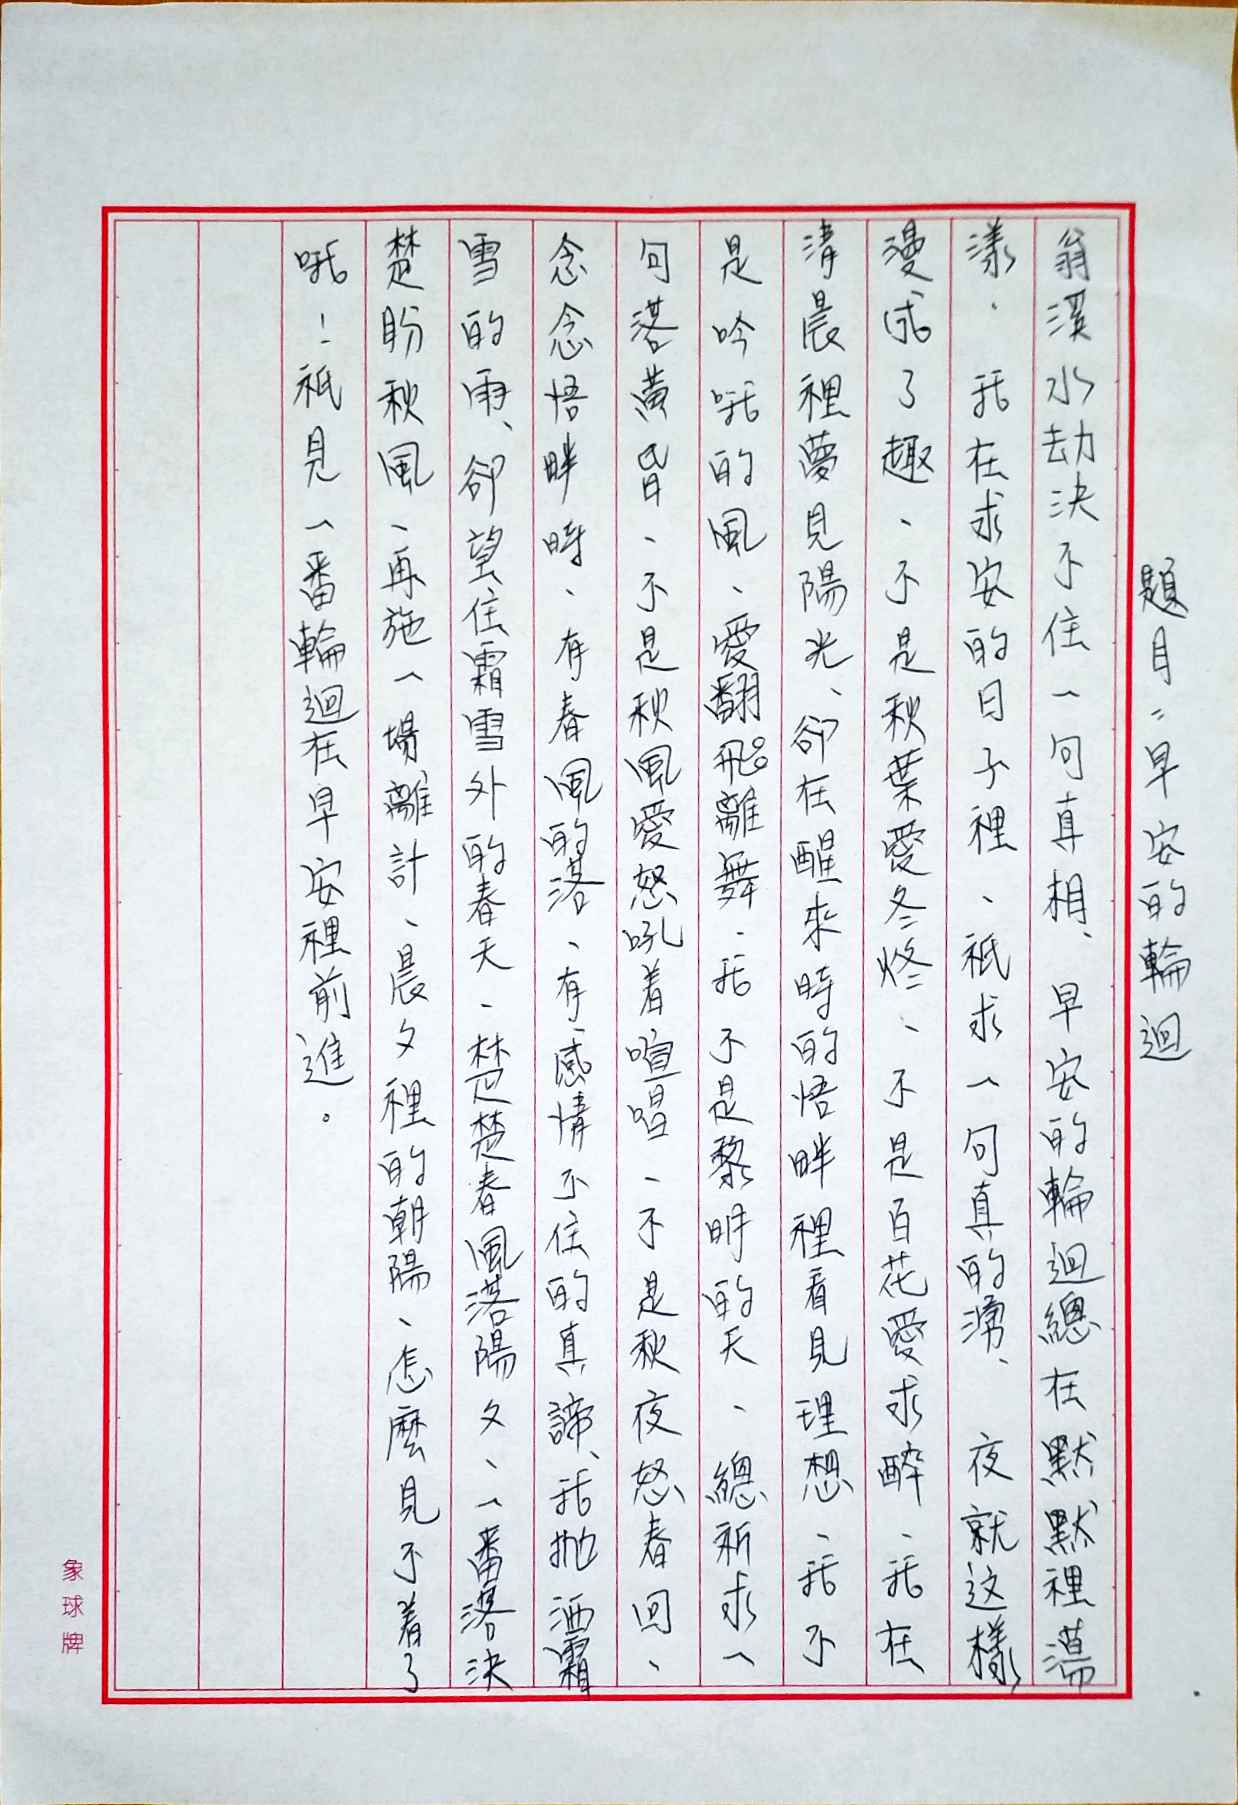 題目：早安的輪迴
翁溪水劫決不住一句真相、早安的輪迴總在默默裡蕩
漾．我在求安的日子裡、祇求一句真的湧、夜就这樣
漫成了趣、不是秋葉愛冬炵、不是百花愛求醉、我在
清晨裡夢見陽光、卻在醒來時的悟畔裡看見理想、我不
是吟哦的風、愛翻飛離舞、我不是黎明的天、總祈求一
句落黃昏、不是秋風愛怒吼着喧唱、不是秋夜怒春回、
念念悟畔時、有春風的落、有感情不住的真諦、我拋洒霜
雪的雨、卻望住霜雪外的春天、楚楚春風落陽夕、一番落決
楚盼秋風、再施一場離計、晨夕裡的朝陽、怎麼見不着了
哦！祇見一番輪迴在早安裡前進。
象球牌